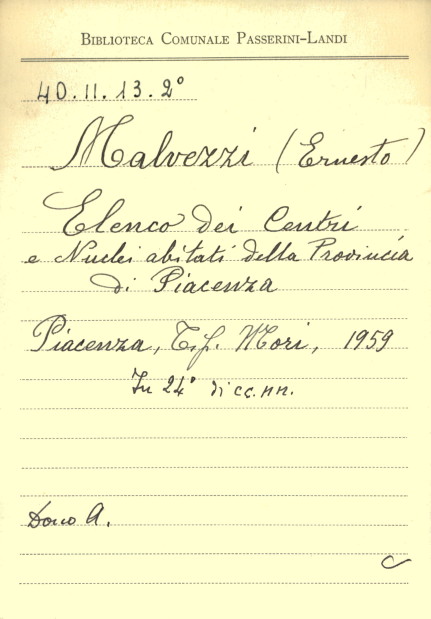 BIBLIOTECA COMUNALE PASSERINI-LANDI
40.II.13.2°
Malvezzi (Ernesto)
Elenco dei Centri
e Nuclei abitati della Provincia
di Piacenza
Piacenza, Tip. Mori, 1959
In 24° di cc.nn.
Dono A.
C